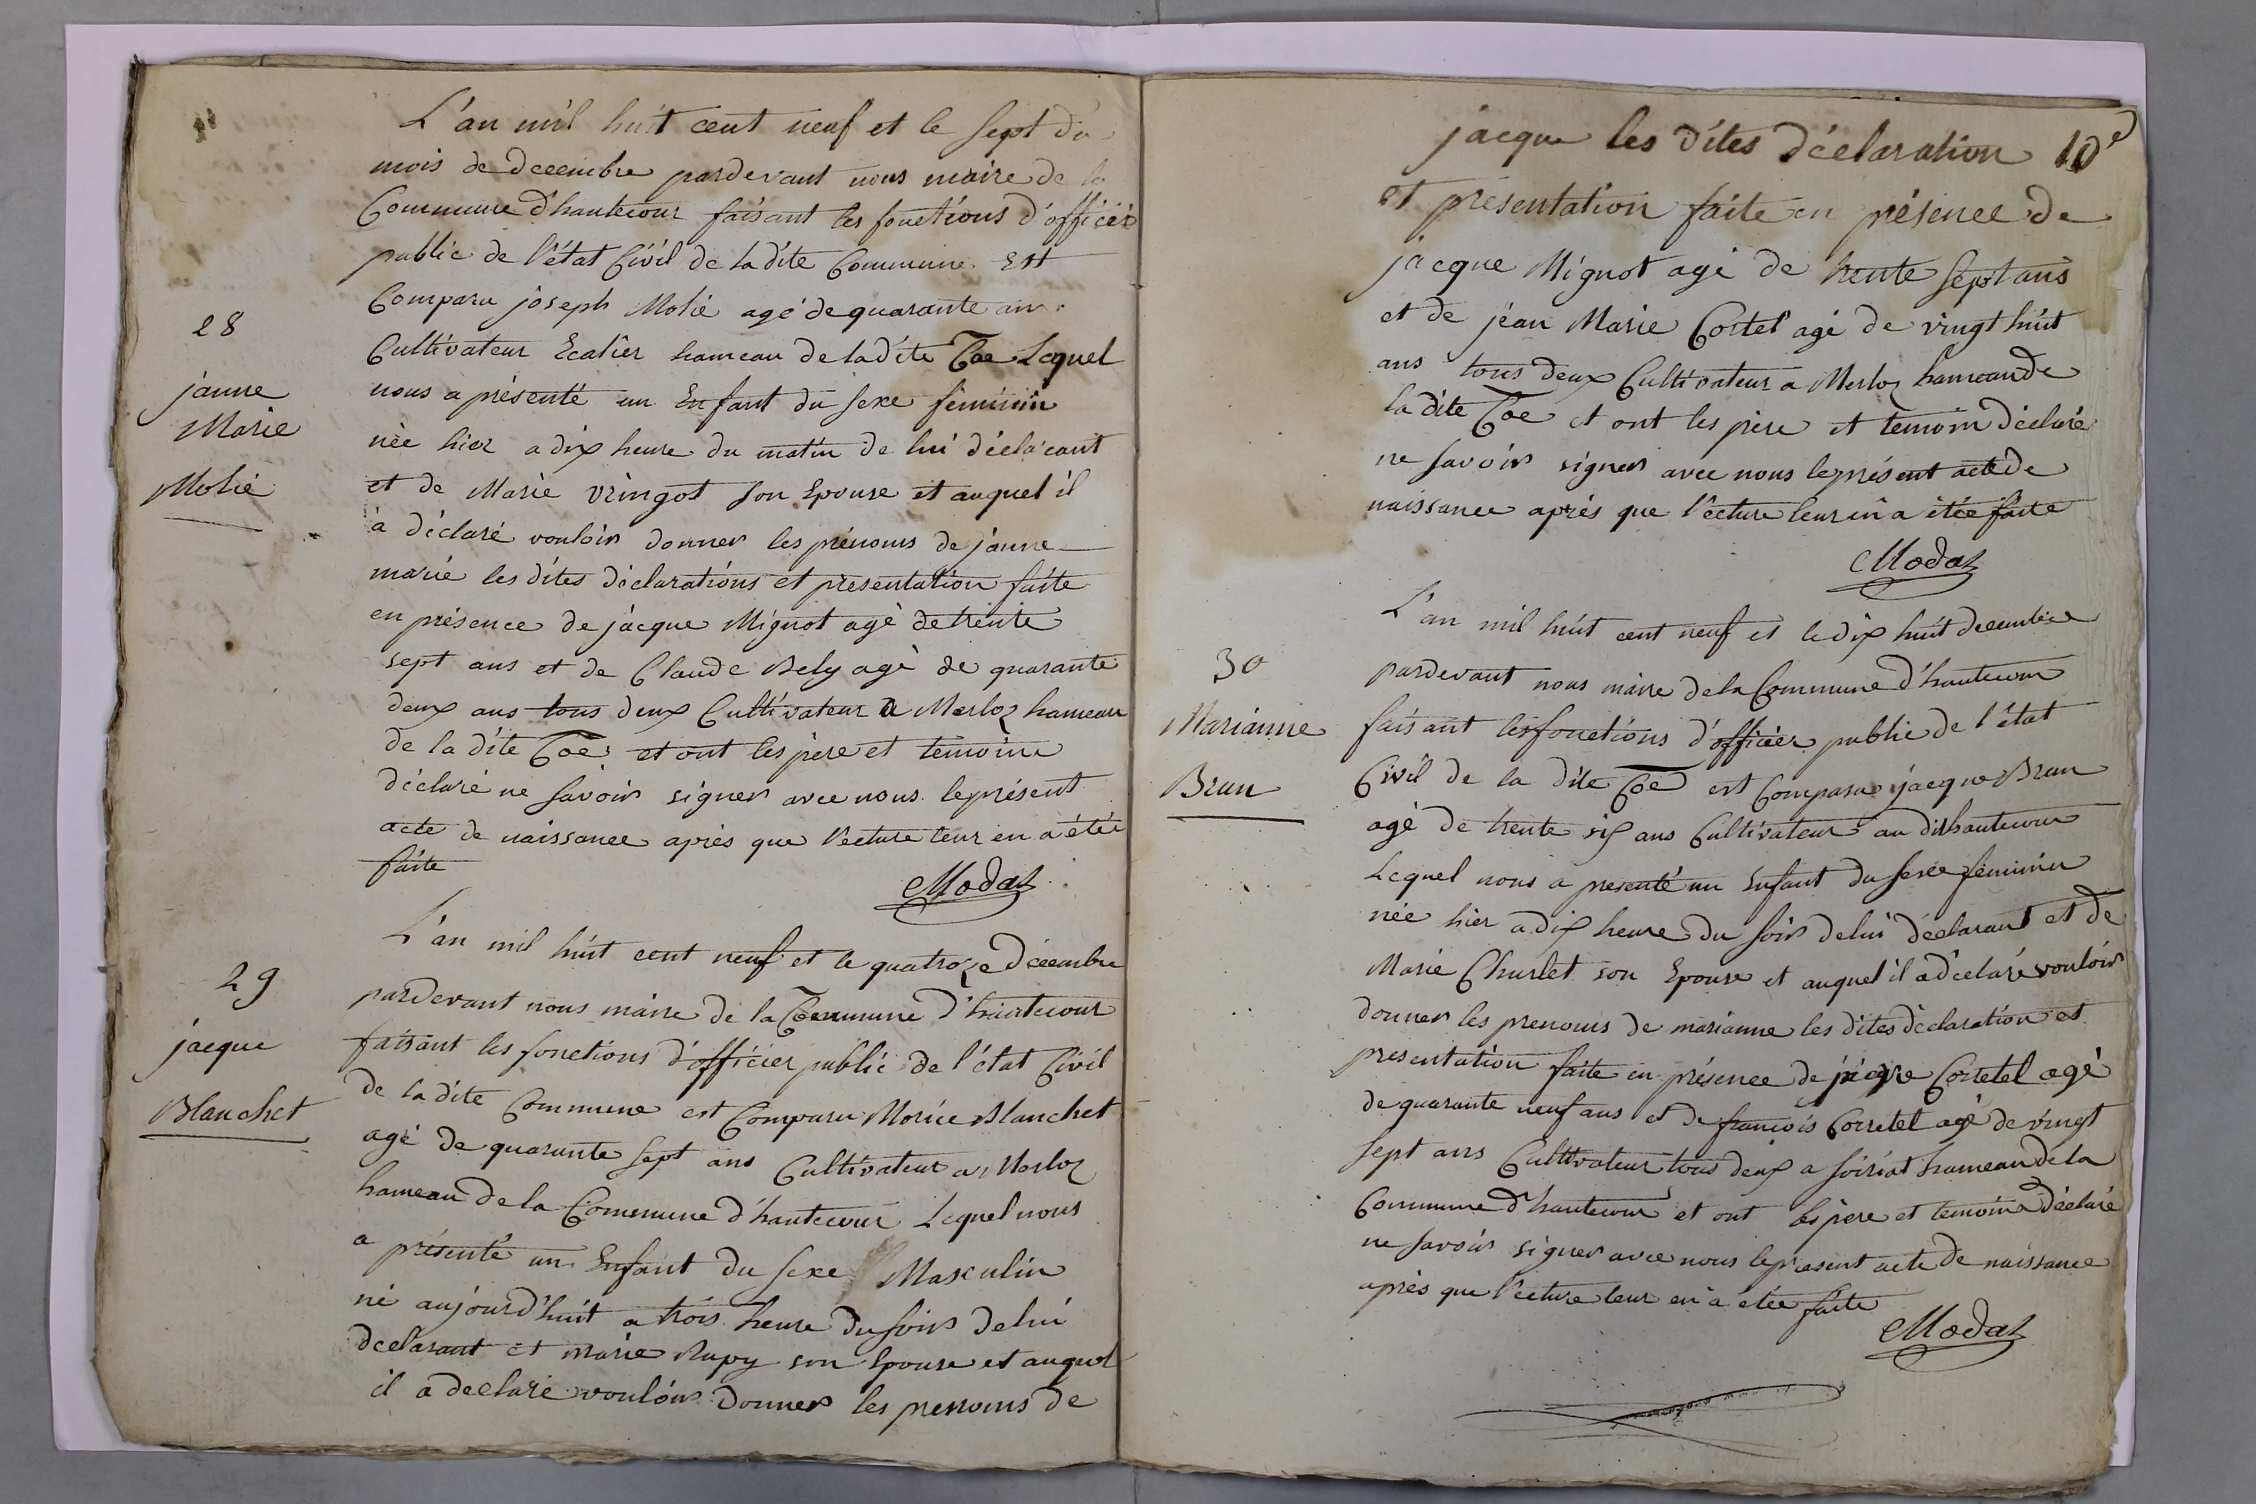 L'an mil huit cent neuf et le sept du
mois de decembre pardevant nous maire de la
Commune d'hautecour faisant les fonctions d'officiér
public de l'état Civil de la dite Commune Est
Comparu joseph Molié agé de quarante ans
Cultivateur Ecalier hameau de la dite Coe Lequel
nous a présenté un Enfant du sexe féminin
née hier a dix heure du matin de lui déclarant
et de Marie vringot son Epouse et auquel il
à déclaré vouloir donner les prénoms de janne
marie les dites déclarations et présentation faite
en présence de jàcque Mignot agé de trente
sept ans et de Claude Bely agé de quarante
deux ans tous deux Cultivateur a Merloz hameau
de la dite Coe et ont les père et temoins
déclaré ne savoir signer avec nous le présent
acte de naissance après que l'ecture leur en a étée
faite
Modas
28
janne
Marie
Molié
L'an mil huit cent neuf et le quatroze décembre
pardevant nous maire de la Commune d'hautecour
faisant les fonctions d'officier public de l'état Civil
de la dite Commune est Comparu Morice Blanchet
agé de quarante sept ans Cultivateur a Merloz
hameau de la Commune d'hautecour Lequel nous
a présenté un Enfant du sexe Masculin
né aujourd'huit a trois heure du soir de lui
declarant et marie Rupy son Epouse et auquel
il a declaré vouloir donner les prenoms de
29
jacque
Blanchet
jacque les dites déclaration 10e
et présentation faite en présence de
jacque Mignot agé de trente sept ans
et de jean Marie Cortet agé de vingt huit
ans tous deux Cultivateur a Merloz hameau de
la dite Coe et ont les père et temoin déclaré
ne savoir signer avec nous le présent acte de
naissance aprés que l'ecture leur en a étée faite
Modas
L'an mil huit cent neuf et le dix huit decembre
pardevant nous maire de la Commune d'hautecour
faisant les fonctions d'officier public de l'état
Civil de la dite Coe est Comparu jacque Brun
agé de trente six ans Cultivateur au dit hautecour
Lequel nous a presenté un Enfant du sexe féminin
née hier a dix heure du soir de lui déclarant et de
Marie Churlet son Epouse et auquel il a déclaré vouloir
donner les prenoms de marianne les dites déclaration et
presentation faite en présence de Corretel agé
de quarante neuf ans et de francois Corretel agé de vingt
sept ans Cultivateur tous deux a soiriat hameau de la
Commune d'hautecour et ont les père et temoins déclaré
ne savoir signer avec nous le present acte de naissance
après que l'ecture leur en a étée faite
Modas
30
Marianne
Brun